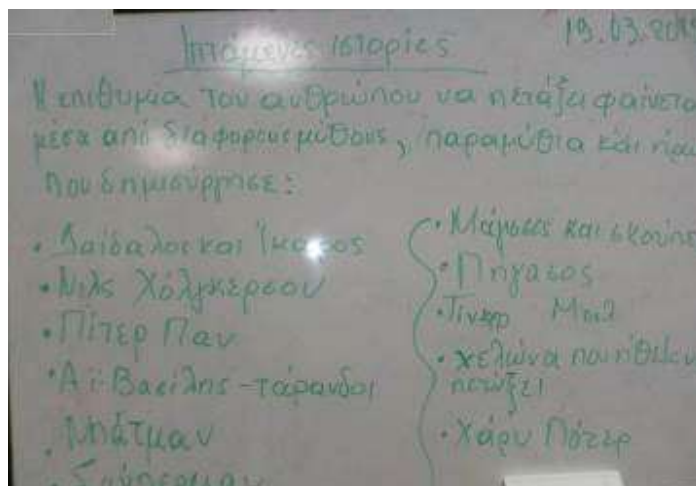 Ιπτάμενες ιστορίες
19.03.20
Η επιθυμία του ανθρώπου να πετάξει φαίνετα
μέσα από διαφορους μύθους, παραμύθια και
που δημιούργησε:
• Δαίδαλος και Ίκαρος
• Νιλς Χόλγκερσον
• Πίτερ Παν
• Αϊ-Βασίλης-τάρανδοι
• Μπάτμαν
• Σούπερμαν
• Μάγισσες και σκούπες
• Πήγασος
• Τίνκερ Μπελ
• χελώνα που ήθελε ν
πετάξει
• Χάρυ Πότερ